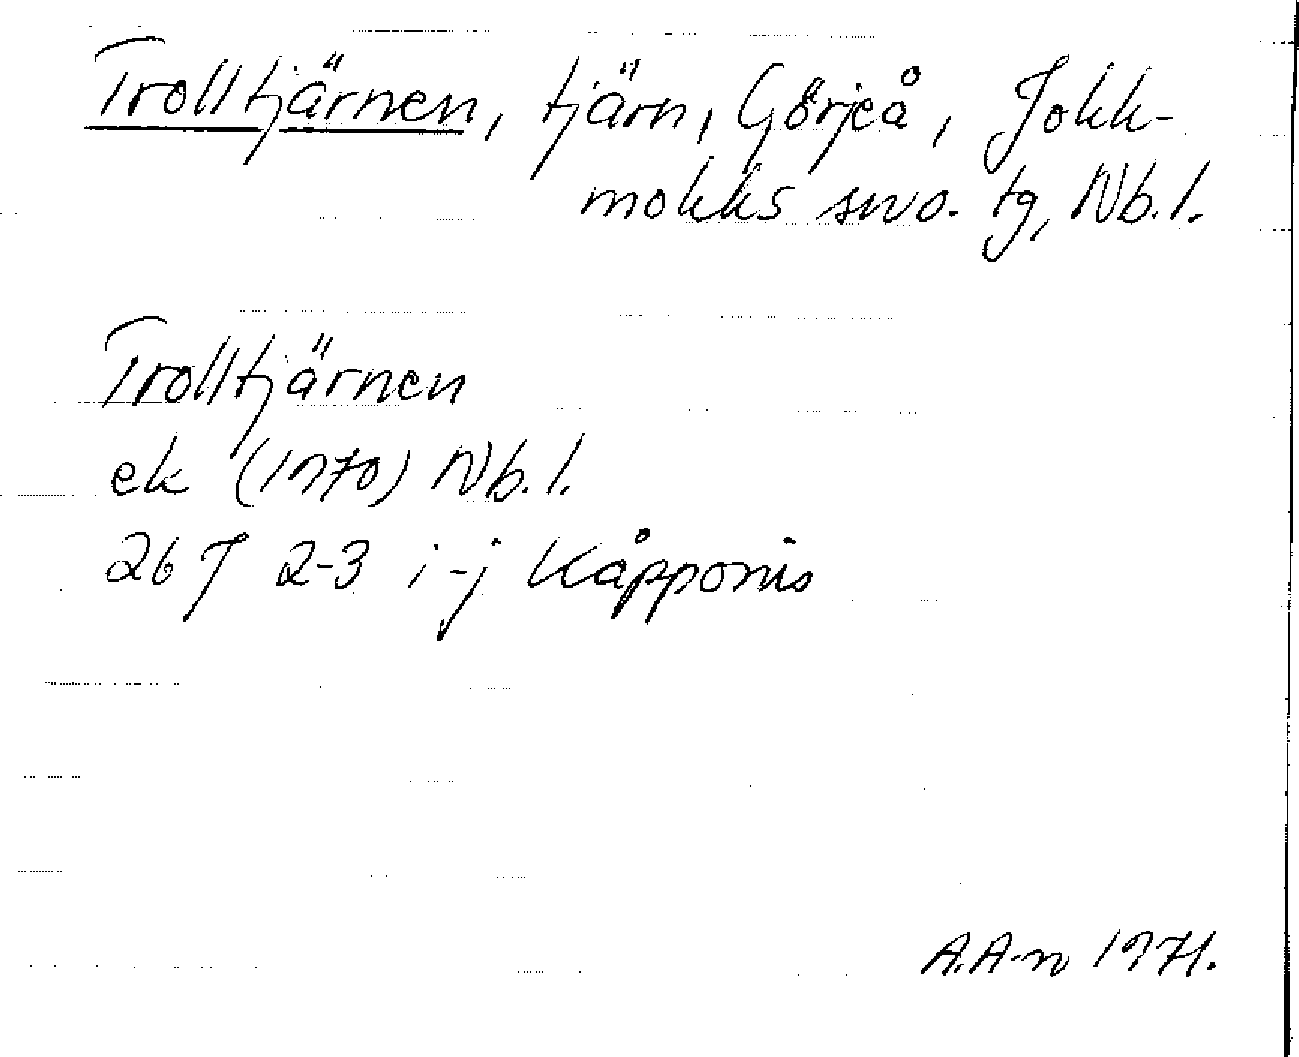 Trolltjärnen, tjärn, Görjeå, Jokk-
mokks svo. tg, Nb.l.
Trolltjärnen
ek (1970) Nb.l.
26 J 2-3 i-j Kåpponis
A.A-n 1971.